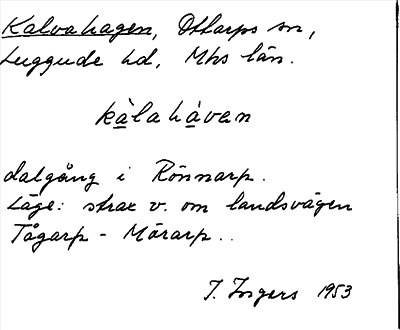 Kalvahagen, Ottarps sn,
Luggude hd, Mhs län.
kàlahávan
dalgång i Rönnarp.
Läge: strax v. om landsvägen
Tågarp - Mörarp..
I. Ingers 1953